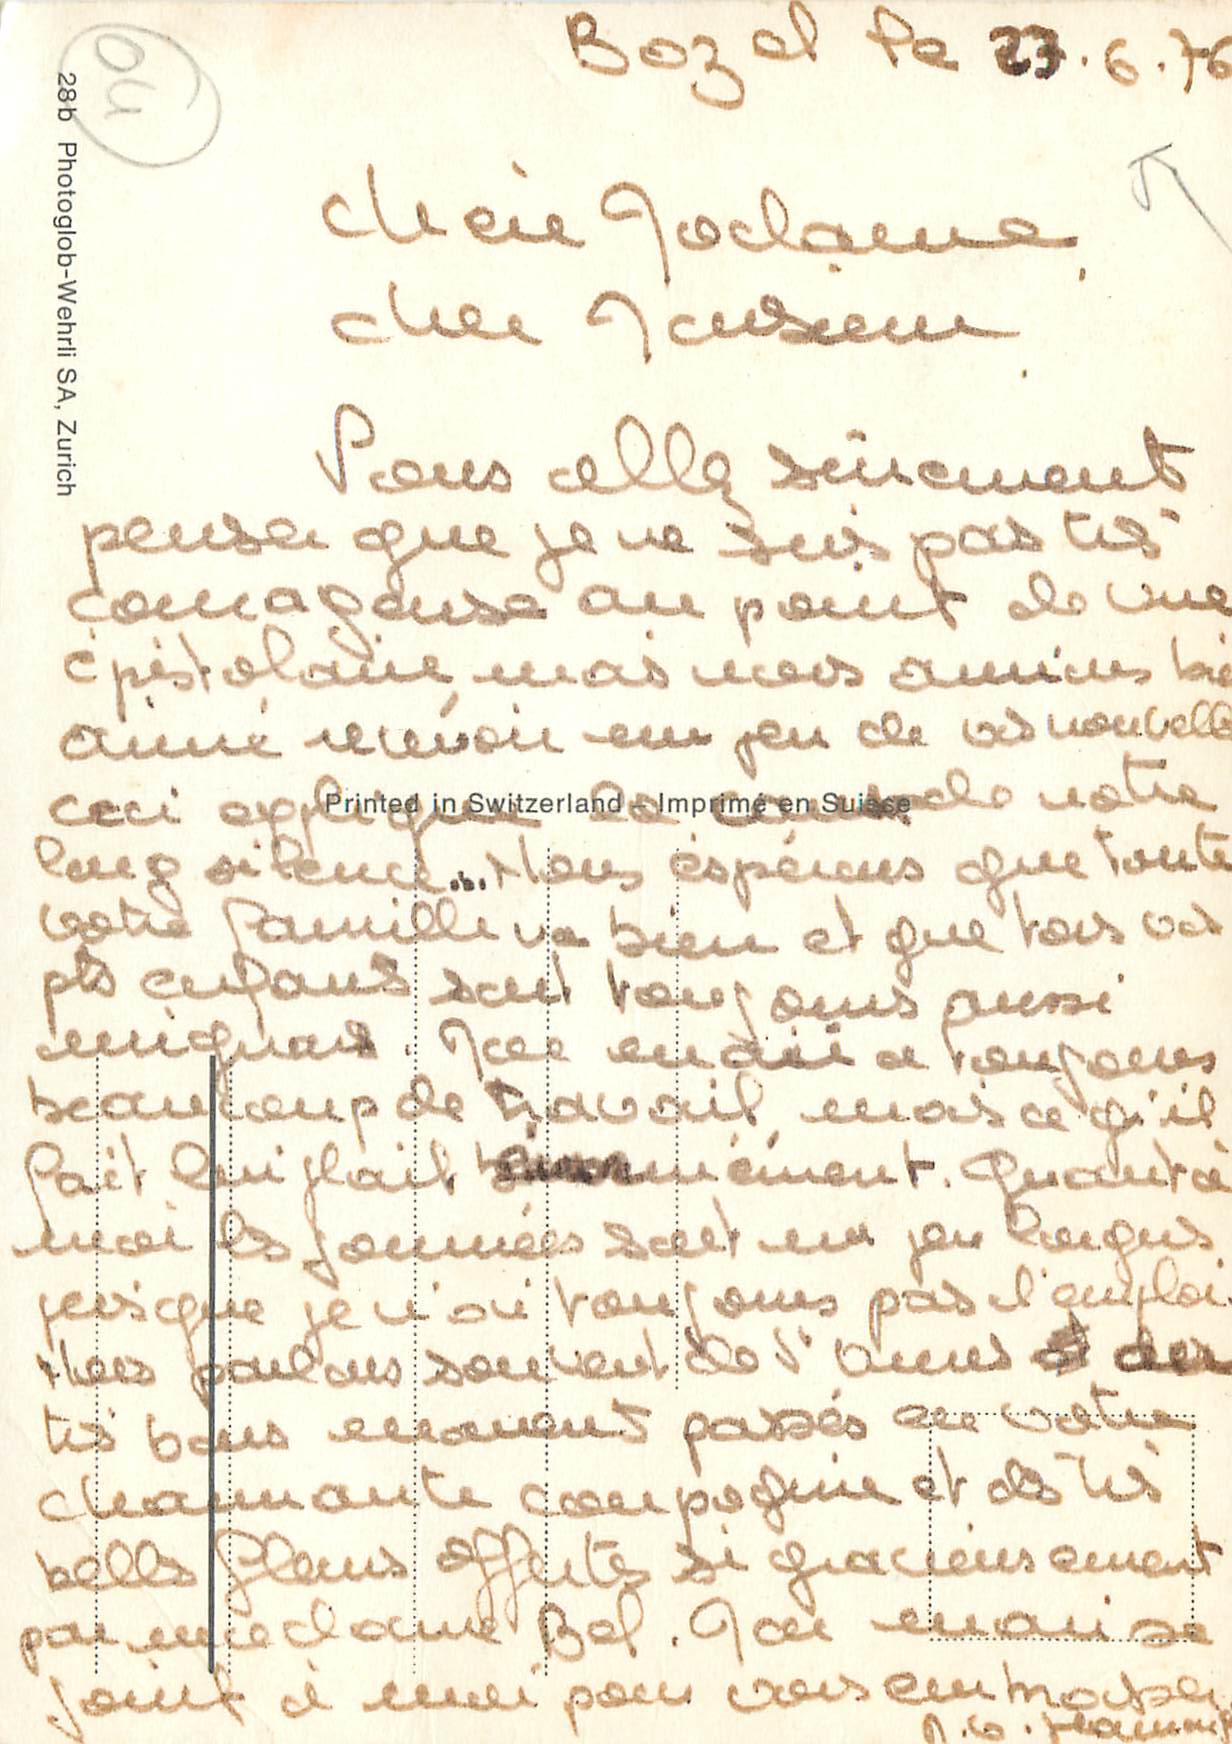 Bozel le 23.6.76
04
28b Photoglob-Wehrli SA, Zurich
chère Madame,
cher Monsieur.
Vous allez sûrement
penser que je ne suis pas très
courageuse au point de vue
épistolaire, mais nous aurions bien
aimé recevoir un peu de vos nouvelles
ceci explique la cause de notre
Printed in Switzerland – Imprimé en Suisse
long silence... Nous espérons que toute
votre famille va bien et que tous vos
pts enfants sont toujours aussi
mignons. Mon mari a toujours
beaucoup de travail, mais ce qu'il
fait lui plait énormément. Quant à
moi les journées sont un peu longues
puisque je n'ai toujours pas d'emploi
Nous parlons souvent de des
très bons moments passés en votre
charmante compagnie et des très
belles fleurs offertes si gracieusement
par madame Bol. Mon mari se
joint à moi pour vous embrasser